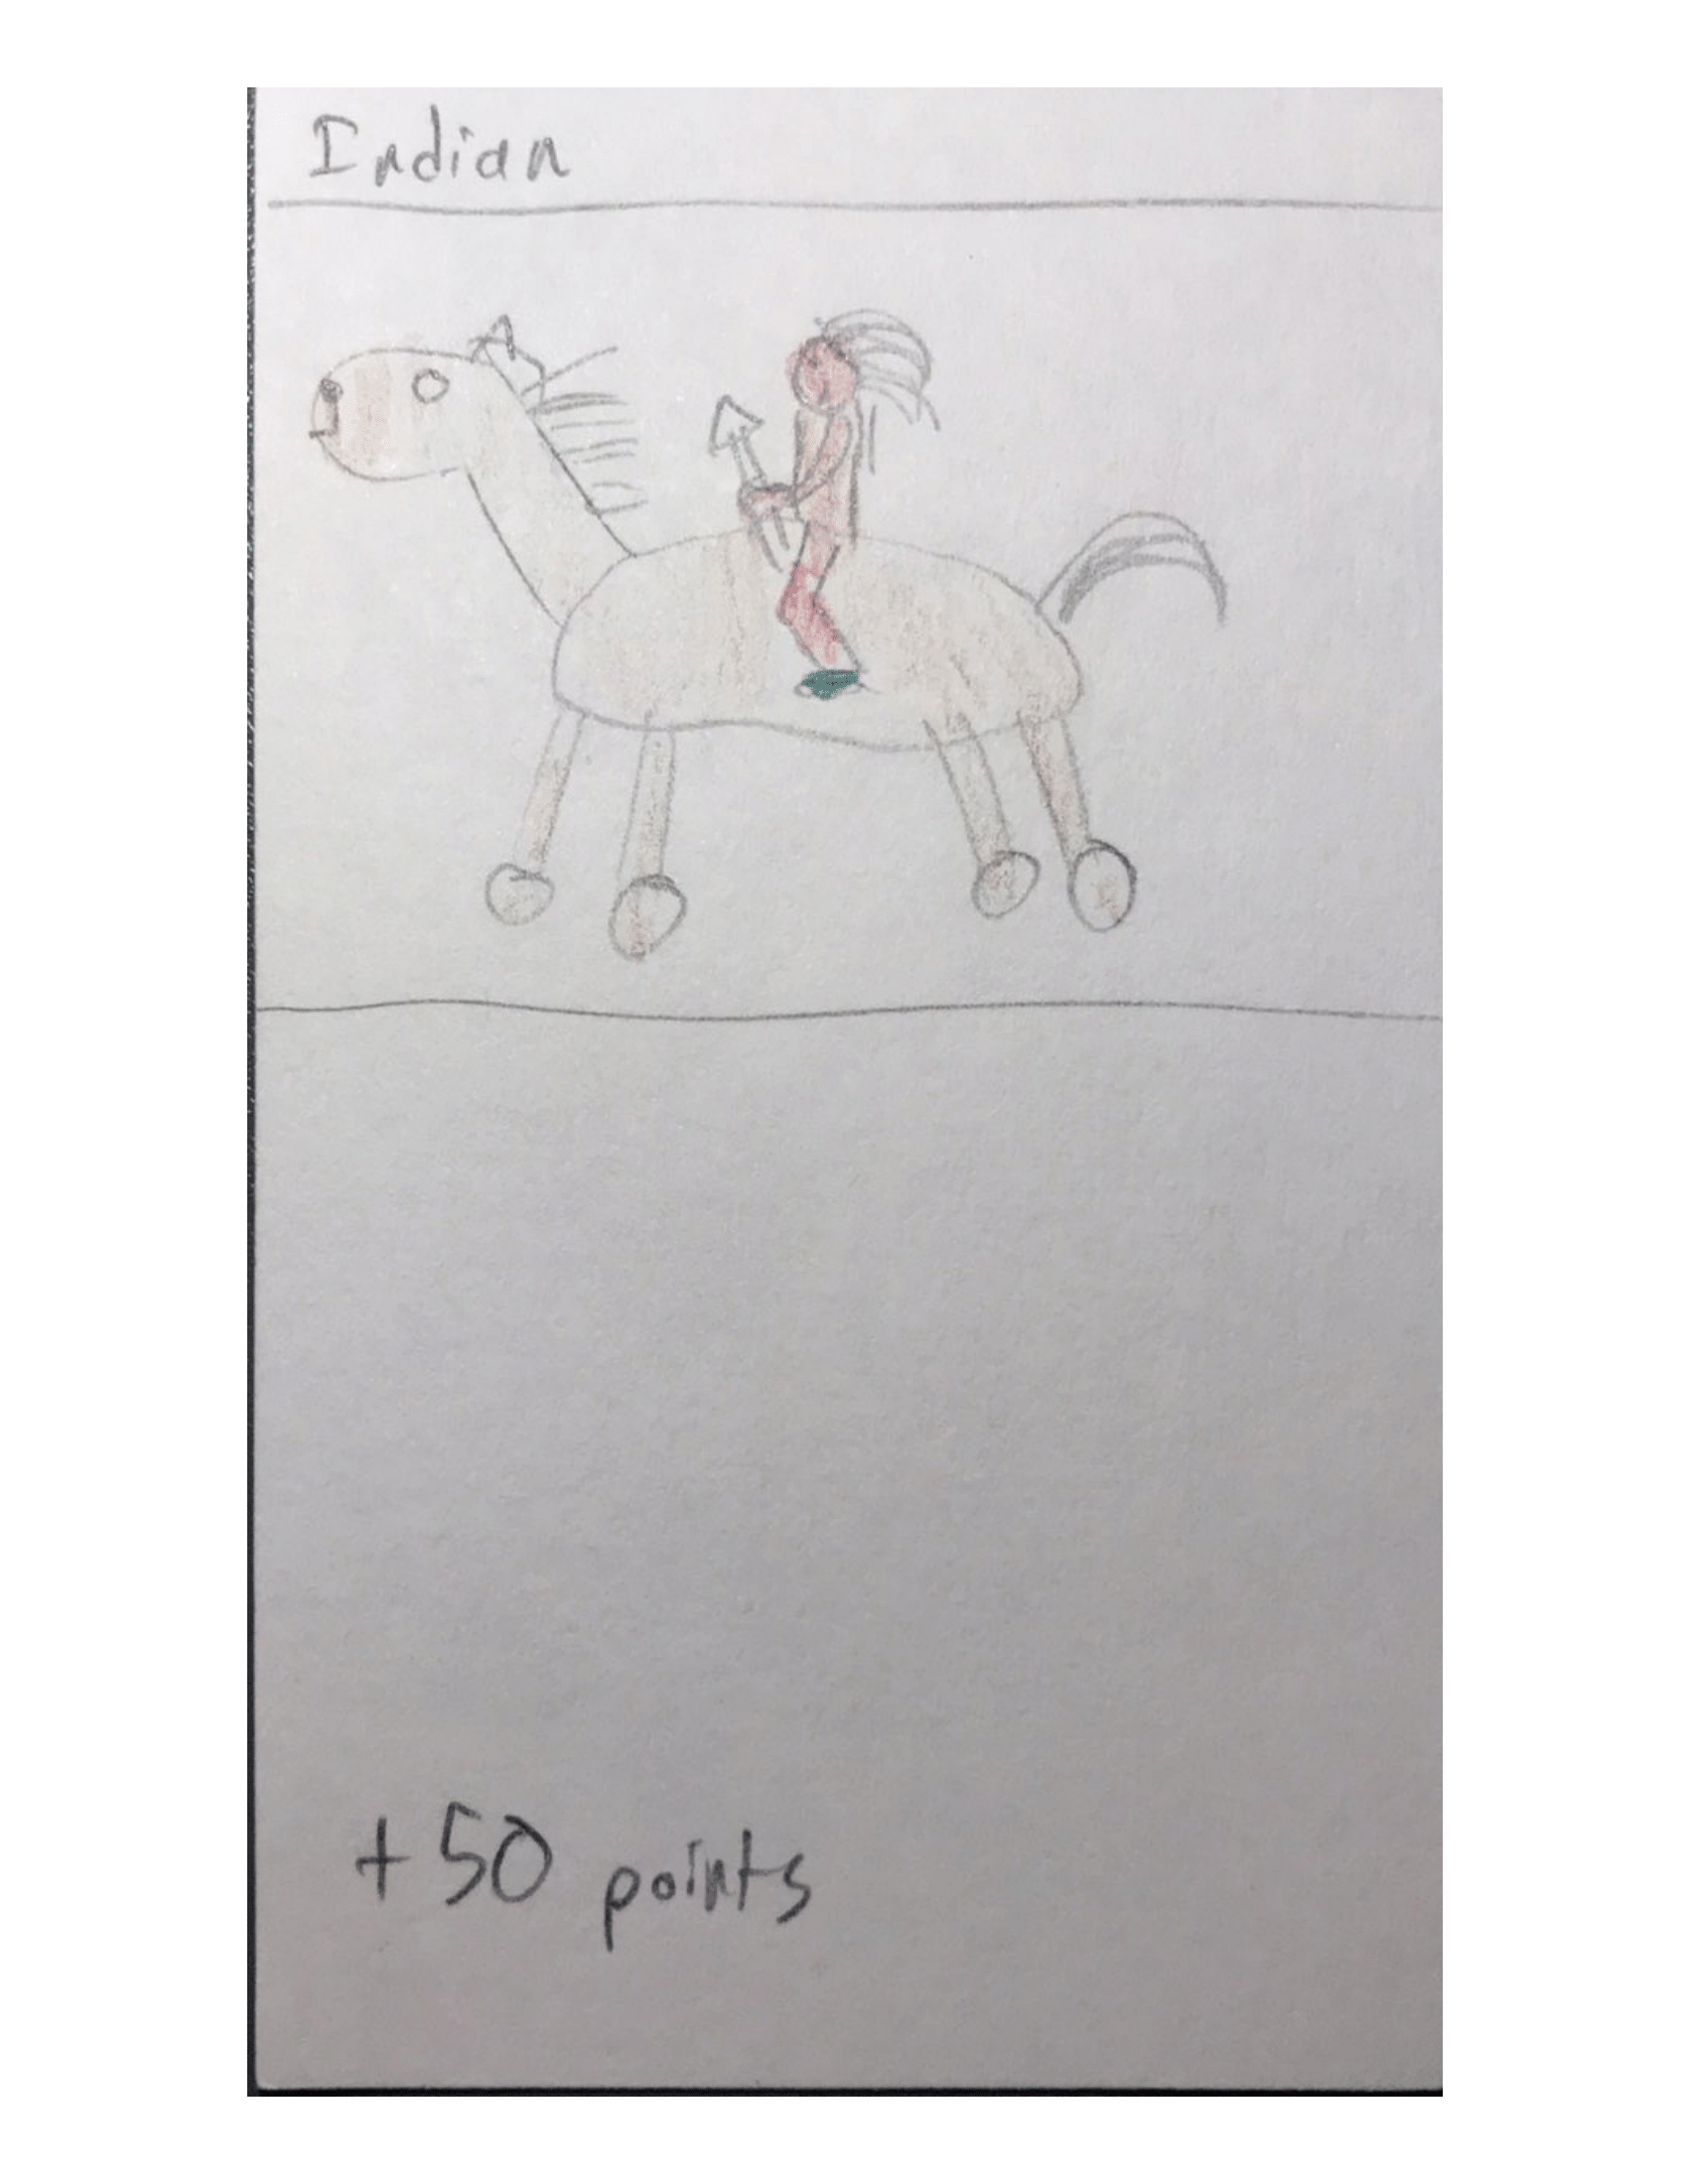 Indian
+50 points